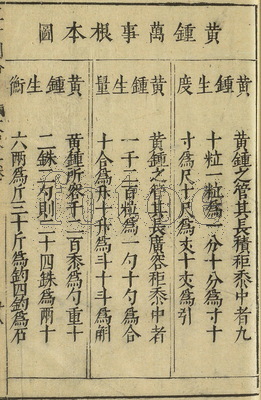 黃鍾萬事根本圖
黃鍾生度
黃鍾之管其長積秬黍中者九
十粒一粒爲一分十分爲寸十
寸爲尺十尺爲丈十丈爲引
黃鍾生量
黃鍾之管其長廣容秬黍中者
一千二百粒爲一勺十勺爲合
十合爲升十升爲斗十斗爲斛
黃鍾生衡
黃鍾所容千二百黍爲勺重十
二銖二勺則二十四銖爲兩十
六兩爲斤三十斤爲鈞四鈞爲石